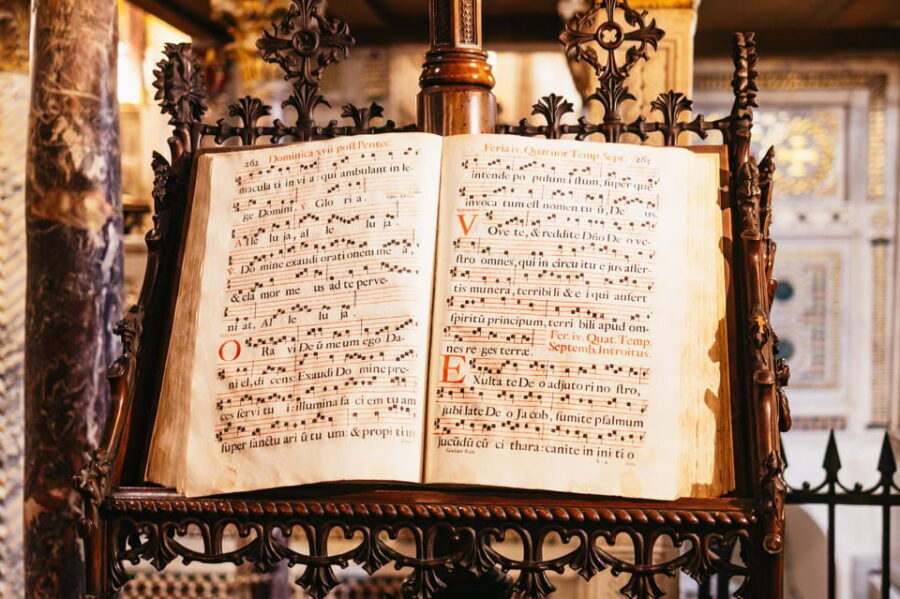 262 Dominica xvii. post Pentec
macula ti in vi a: qui ambulant in le-
ge Domini. ℣ Glo ri a.
Alle lu ja, al le lu ja.
℣. Do mine exaudi orationem me a,
& cla mor me us ad te perve-
ni at, Al le lu ja.
O Ra vi De ū me um ego Da-
ni el, di cens: Exaudi Do mine pre-
ces servi tu i: illumina fa ci em tu am
super sanctu ari ū tu um: & propi ti us
Feria iv. Quatuor Temp. Sept.
intende po pulum i stum, super quē
invoca tum est nomen tu ū, De us.
V Ove te, & reddite Dño De o ve-
stro omnes, qui in circu itu e jus affer-
tis munera, terribi li & e i qui aufert
spiritū principum, terri bili apud om-
nes re ges terræ.
Fer. iv. Quat. Temp.
Septemb. Introitus.
E Xulta te De o adjuto ri no stro,
jubi late De o Ja cob, sumite psalmum
jucūdū cū ci thara: canite in ini ti o